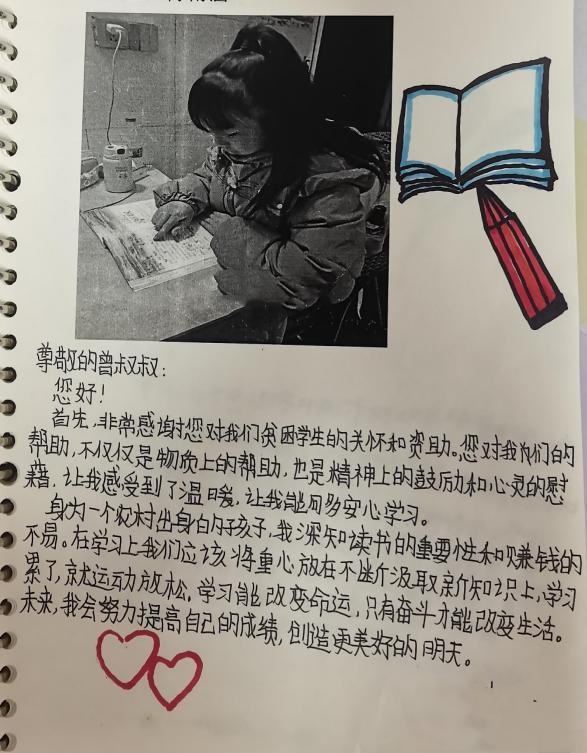 尊敬的曾叔叔：
您好！
首先，非常感谢您对我们贫困学生的关怀和资助。您对我们的
帮助，不仅仅是物质上的帮助，也是精神上的鼓励和心灵的慰
藉，让我感受到了温暖，让我能可多安心学习。
身为一个农村出身的孩子，我深知读书的重要性和赚钱的
不易。在学习上我们应该将重心放在不断汲取新知识上，学习
累了，就运动放松，学习能改变命运，只有奋斗才能改变生活。
未来，我会努力提高自己的成绩，创造更美好的明天。